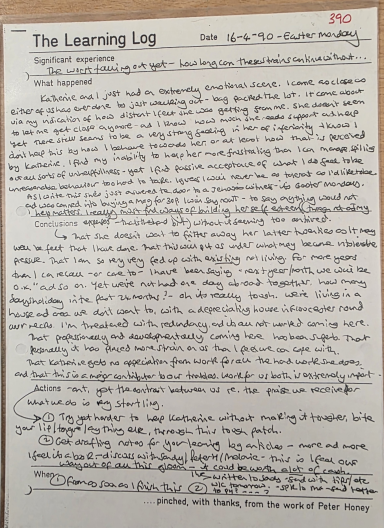 390
The Learning Log Date 16-4-90 - Easter Monday
Significant experience
The worst falling out yet - how long can these strains continue without...
What happened
Katherine and I just had an extremely emotional scene. I came as close as
either of us has ever done to just walking out - bag packed the lot. It came about
via my indication of how distant I feel she was getting from me. She doesn't seem
to let me get close anymore - and I know how much she needs support and help
yet there now seems to be a very strong feeling in her of inferiority. I know I
don't help this by how I behave towards her or at least how that is received
by Katherine. I find my inability to help her more frustrating than I can manage spilling
over all sorts of unhelpfulness - yet I find passive acceptance of what I feel to be
unreasonable behaviour too hard to take. I guess I will never be as tolerant as I'd like to be.
As I write this she just answered the door to a Jehovah's witness - to say nothing would
help matters. I really must find ways of building her self esteem
Conclusions without showing too
That she doesn't want to fritter away her latter twenties as it may
well be fact that I have done. That this will get us under what may become intolerable
pressure. That I am so very very fed up with existing not living. For more years
than I can recall - or care to - I have been saying - next year/month we will be
O.K." and so on. Yet we've not had one day abroad together. how many
days holiday in the past 24 months? - oh it's really tough. We're living in a
house and area we don't want to, with a depreciating house in Gloucester round
our necks. I'm threatened with redundancy and it's not worked coming here.
That professionally and developmentally coming here has been superb. That
personally it has placed more strain on us than I believe we can cope with.
That Katherine gets no appreciation from work for all the hard work she does,
and that this is a major contributor to our troubles. Work for us both is extremely import-
Actions -ant, yet the contrast between us re. the praise we receive for
what we do is startling.
① Try yet harder to help Katherine without making it tougher, bite
your lip/tongue/anything else, through this tough patch.
② Get drafting notes for your learning log articles - more and more
I feel it's a book - discuss with / Peter / Melanie - this is I feel our
way out of all this gloom - it could be worth a lot of cash.
When
① from as soon as I finish this ② w/c tomorrow
.... pinched, with thanks, from the work of Peter Honey